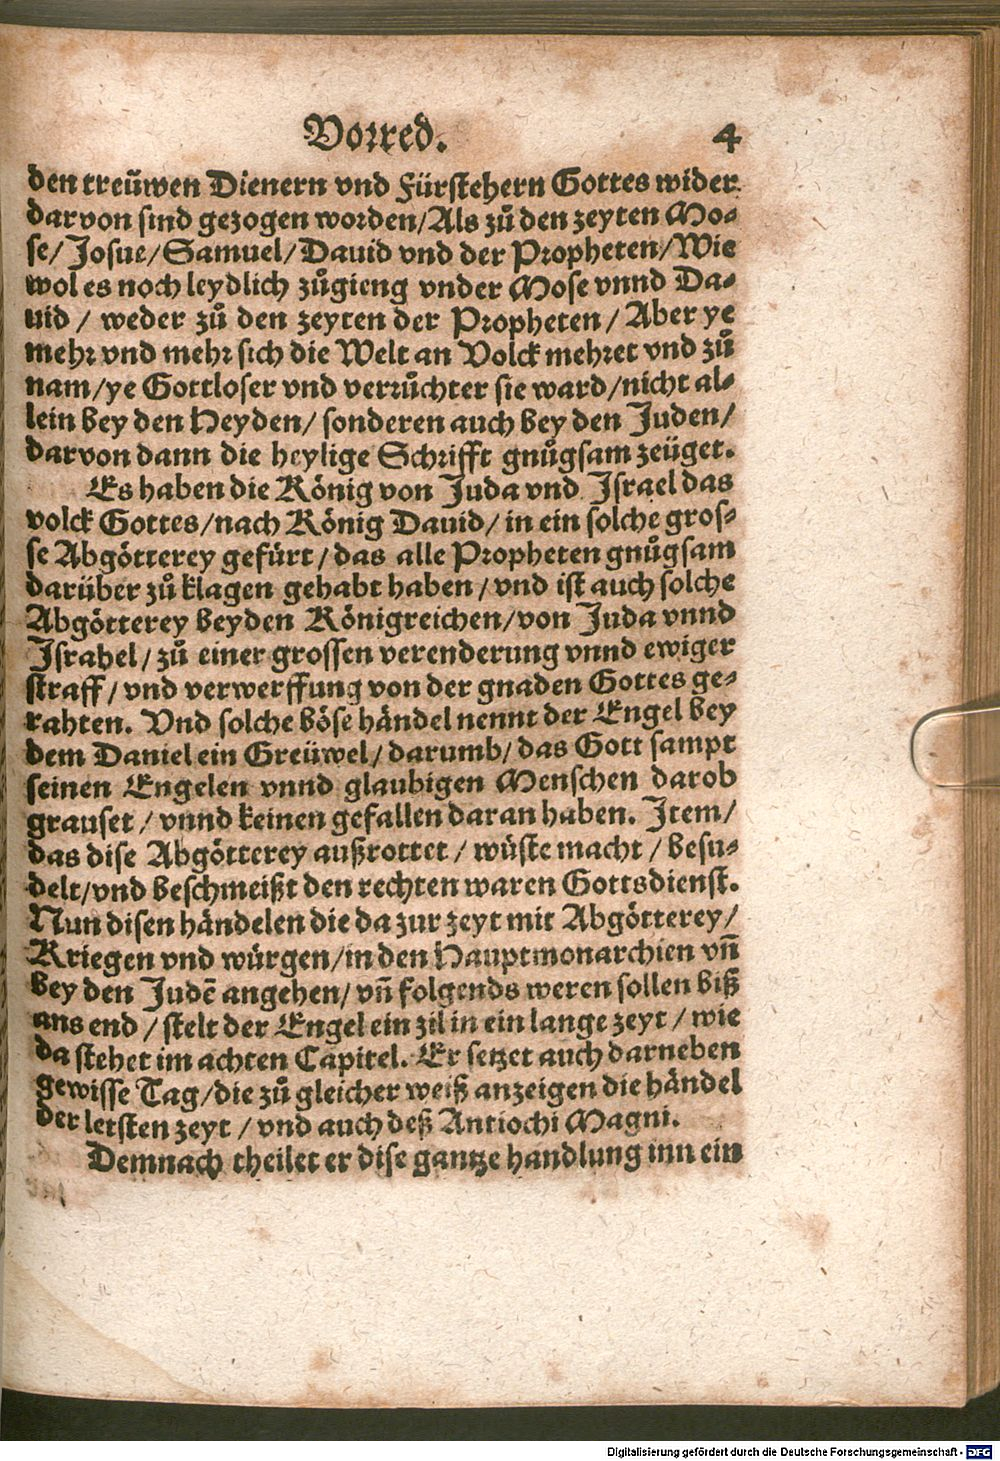 Vorred. 4
den treüwen Dienern vnd Fürstehern Gottes wider
darvon sind gezogen worden/Als zů den zeyten Mo-
se/Josue/Samuel/Dauid vnd der Propheten/Wie
wol es noch leydlich zůgieng vnder Mose vnnd Da-
uid / weder zů den zeyten der Propheten/ Aber ye
mehr vnd mehr sich die Welt an Volck mehret vnd zů
nam/ye Gottloser vnd verrůchter sie ward/nicht al-
lein bey den Heyden/ sonderen auch bey den Juden/
darvon dann die heylige Schrifft gnůgsam zeüget.
Es haben die König von Juda vnd Israel das
volck Gottes/nach König Dauid/ in ein solche gros-
se Abgötterey gefürt/das alle Propheten gnůgsam
darüber zů klagen gehabt haben/vnd ist auch solche
Abgötterey beyden Königreichen/von Juda vnnd
Israhel/zů einer grossen verenderung vnnd ewiger
straff/vnd verwerffung von der gnaden Gottes ge-
rahten. Vnd solche böse händel nennt der Engel bey
dem Daniel ein Greüwel/darumb/das Gott sampt
seinen Engelen vnnd glaubigen Menschen darob
grauset/vnnd keinen gefallen daran haben. Item/
das dise Abgötterey außrottet/ wüste macht/ besu-
delt/vnd beschmeißt den rechten waren Gottsdienst.
Nun disen händelen die da zur zeyt mit Abgötterey/
Kriegen vnd würgen/in den Hauptmonarchien vñ
bey den Judē angehen/vñ folgends weren sollen biß
ans end/stelt der Engel ein zil in ein lange zeyt/wie
da stehet im achten Capitel. Er setzet auch darneben
gewisse Tag/die zů gleicher weiß anzeigen die händel
der letsten zeyt/vnd auch deß Antiochi Magni.
Demnach theilet er dise gantze handlung inn ein
Digitalisierung gefördert durch die Deutsche Forschungsgemeinschaft - DFG